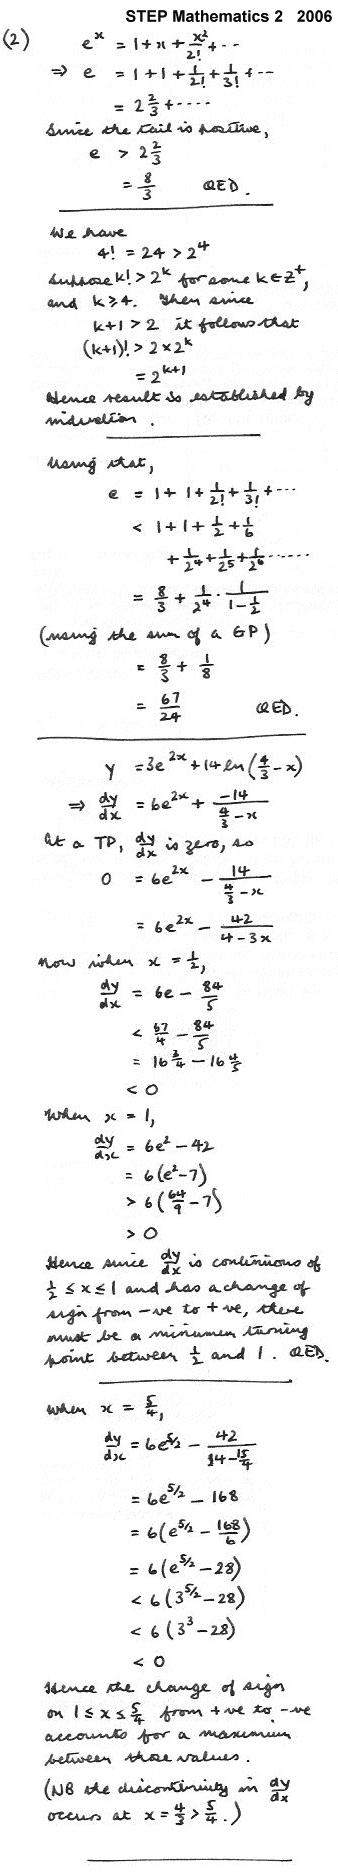 STEP Mathematics 2 2006
(2) e^x = 1 + x + x²/2! + ··
⇒ e = 1 + 1 + 1/2! + 1/3! + ··
= 2 2/3 + ····
Since the tail is positive,
e > 2 2/3
= 8/3 QED.
We have
4! = 24 > 2^4
Suppose k! > 2^k for some k ∈ Z^+,
and k ⩾ 4. Then since
k+1 > 2 it follows that
(k+1)! > 2 × 2^k
= 2^(k+1)
Hence result is established by
induction.
Using that,
e = 1 + 1 + 1/2! + 1/3! + ···
< 1 + 1 + 1/2 + 1/6
+ 1/2^4 + 1/2^5 + 1/2^6 ······
= 8/3 + 1/2^4 · 1/(1 − 1/2)
(using the sum of a GP)
= 8/3 + 1/8
= 67/24 QED.
y = 3e^(2x) + 14 ln(4/3 − x)
⇒ dy/dx = 6e^(2x) + −14/(4/3 − x)
At a TP, dy/dx is zero, so
0 = 6e^(2x) − 14/(4/3 − x)
= 6e^(2x) − 42/(4 − 3x)
Now when x = 1/2,
dy/dx = 6e − 84/5
< 67/4 − 84/5
= 16 3/4 − 16 4/5
< 0
When x = 1,
dy/dx = 6e² − 42
= 6(e² − 7)
> 6(64/9 − 7)
> 0
Hence since dy/dx is continuous of
1/2 ⩽ x ⩽ 1 and has a change of
sign from −ve to +ve, there
must be a minimum turning
point between 1/2 and 1. QED.
When x = 5/4,
dy/dx = 6e^(5/2) − 42/(4 − 15/4)
= 6e^(5/2) − 168
= 6(e^(5/2) − 168/6)
= 6(e^(5/2) − 28)
< 6(3^(5/2) − 28)
< 6(3^3 − 28)
< 0
Hence the change of sign
on 1 ⩽ x ⩽ 5/4 from +ve to −ve
accounts for a maximum
between those values.
(NB the discontinuity in dy/dx
occurs at x = 4/3 > 5/4.)